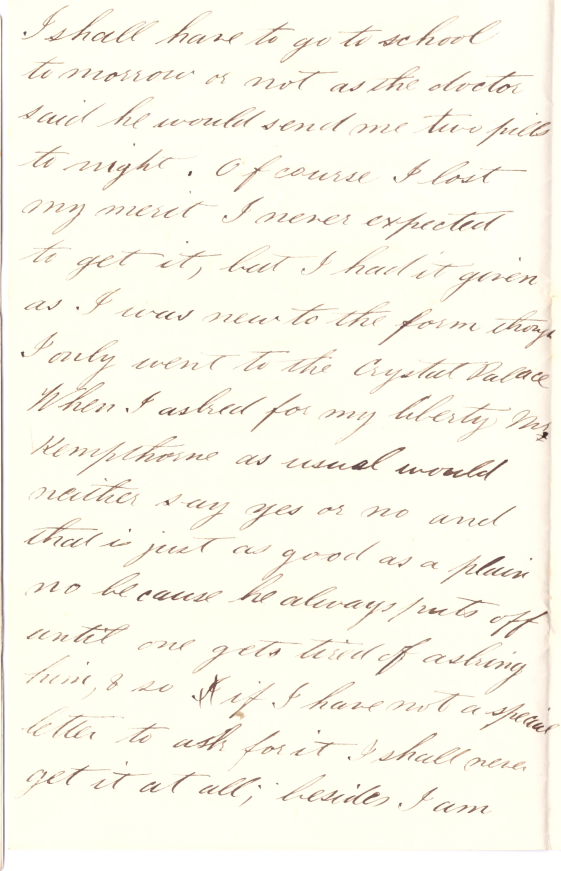 I shall have to go to school
to morrow or not as the doctor
said he would send me two pills
to night. Of course I lost
my merit I never expected
to get it, but I had it given
as I was new to the form though
I only went to the Crystal Palace
When I asked for my liberty Mr
Kempthorne as usual would
neither say yes or no and
that is just as good as a plain
no because he always puts off
until one gets tired of asking
him, & so if I have not a special
letter to ask for it I shall never
get it at all; besides I am